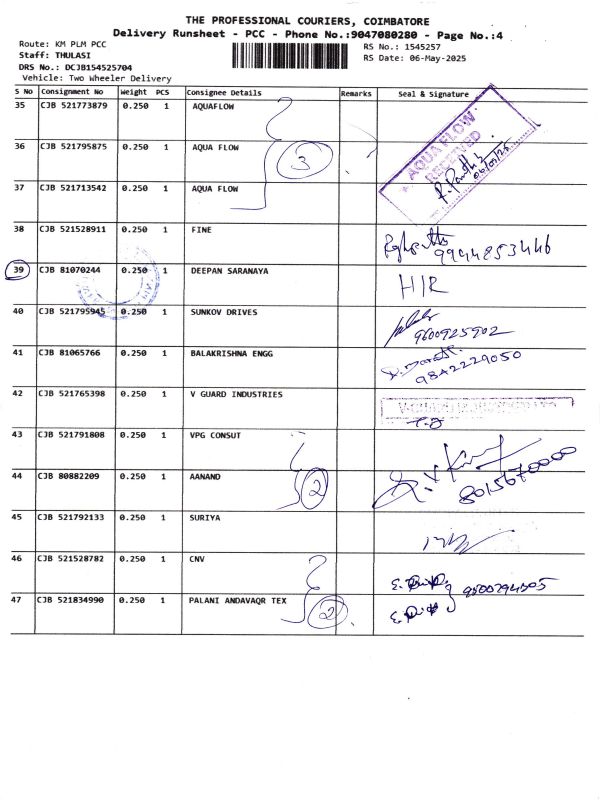 THE PROFESSIONAL COURIERS, COIMBATORE
Delivery Runsheet - PCC - Phone No.:9047080280 - Page No.:4
Route: KM PLM PCC
Staff: THULASI
DRS No.: DCJB154525704
Vehicle: Two Wheeler Delivery
RS No.: 1545257
RS Date: 06-May-2025
S No Consignment No Weight PCS Consignee Details Remarks Seal & Signature
35 CJB 521773879 0.250 1 AQUAFLOW
36 CJB 521795875 0.250 1 AQUA FLOW
3
AQUA FLOW
RECEIVED
06/05/25
37 CJB 521713542 0.250 1 AQUA FLOW
38 CJB 521528911 0.250 1 FINE
9944853446
39 CJB 81070244 0.250 1 DEEPAN SARANAYA
H/R
40 CJB 521795945 0.250 1 SUNKOV DRIVES
9600925902
41 CJB 81065766 0.250 1 BALAKRISHNA ENGG
9842229050
42 CJB 521765398 0.250 1 V GUARD INDUSTRIES
43 CJB 521791808 0.250 1 VPG CONSUT
44 CJB 80882209 0.250 1 AANAND
2
8015670000
45 CJB 521792133 0.250 1 SURIYA
46 CJB 521528782 0.250 1 CNV
47 CJB 521834990 0.250 1 PALANI ANDAVAQR TEX
2